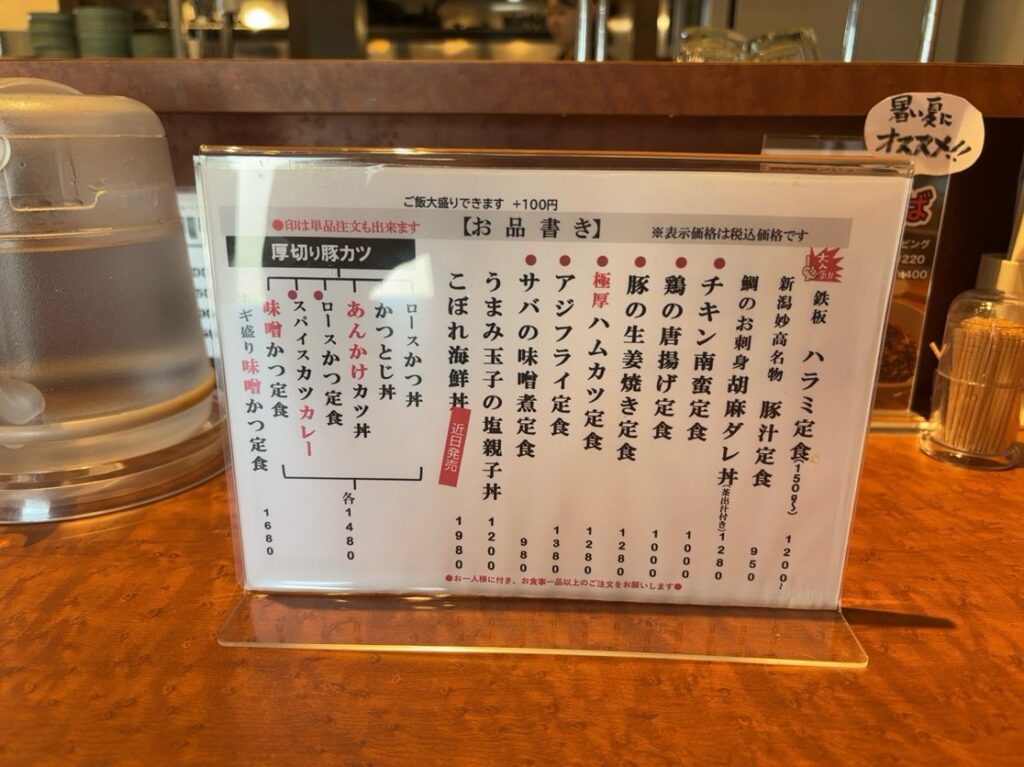 ご飯大盛りできます +100円
●印は単品注文も出来ます
【お品書き】
※表示価格は税込価格です
鉄板 ハラミ定食(150g〜) 1200〜
新潟妙高名物 豚汁定食 950
鯛のお刺身胡麻ダレ丼(茶出汁付き) 1280
●チキン南蛮定食 1000
●鶏の唐揚げ定食 1000
●豚の生姜焼き定食 1280
●極厚ハムカツ定食 1280
●アジフライ定食 1380
●サバの味噌煮定食 980
うまみ玉子の塩親子丼 1200
こぼれ海鮮丼 近日発売 1980
厚切り豚カツ
ロースかつ丼
かつとじ丼
あんかけカツ丼
●ロースかつ定食
●スパイスカツカレー
味噌かつ定食
各1480
ネギ盛り味噌かつ定食 1680
●お一人様に付き、お食事一品以上のご注文をお願いします●
暑い夏に
オススメ!!
ば
ピング
¥220
¥400